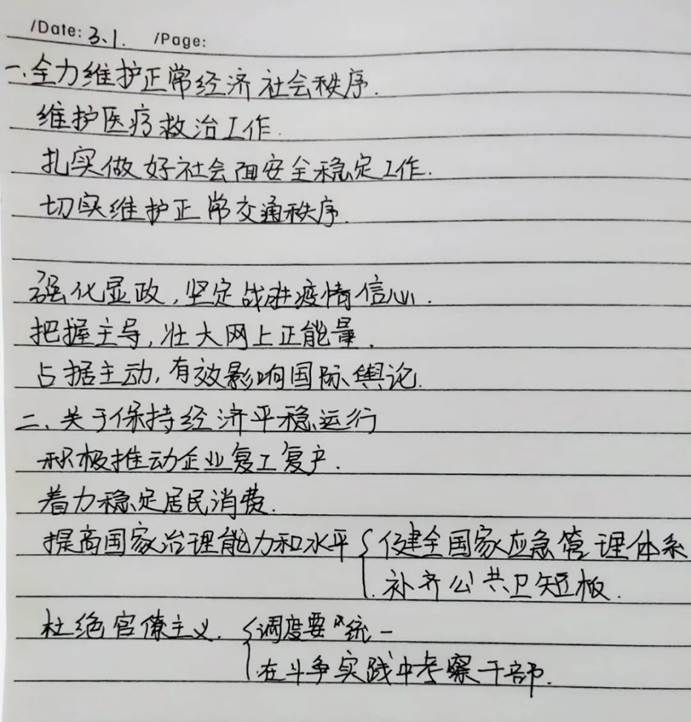 /Date: 3.1. /Page:
一、全力维护正常经济社会秩序.
维护医疗救治工作.
扎实做好社会面安全稳定工作.
切实维护正常交通秩序.
强化显政,坚定战胜疫情信心.
把握主导,壮大网上正能量.
占据主动,有效影响国际舆论.
二、关于保持经济平稳运行
积极推动企业复工复产.
着力稳定居民消费.
提高国家治理能力和水平{健全国家应急管理体系
补齐公共卫短板.
杜绝官僚主义.{调度要"统一
在斗争实践中考察干部.